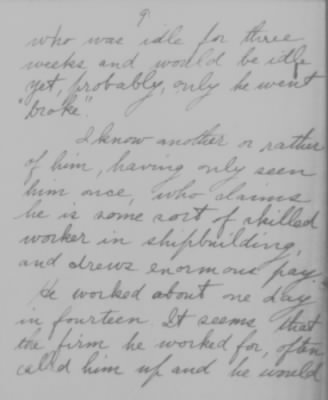 9
who was idle for three
weeks and would be idle
yet, probably, only he went
"broke".
I know another or rather
of him, having only seen
him once, who claims
he is some sort of skilled
worker in shipbuilding,
and drews enormous pay.
He worked about one day
in fourteen. It seems that
the firm he worked for, often
called him up and he would